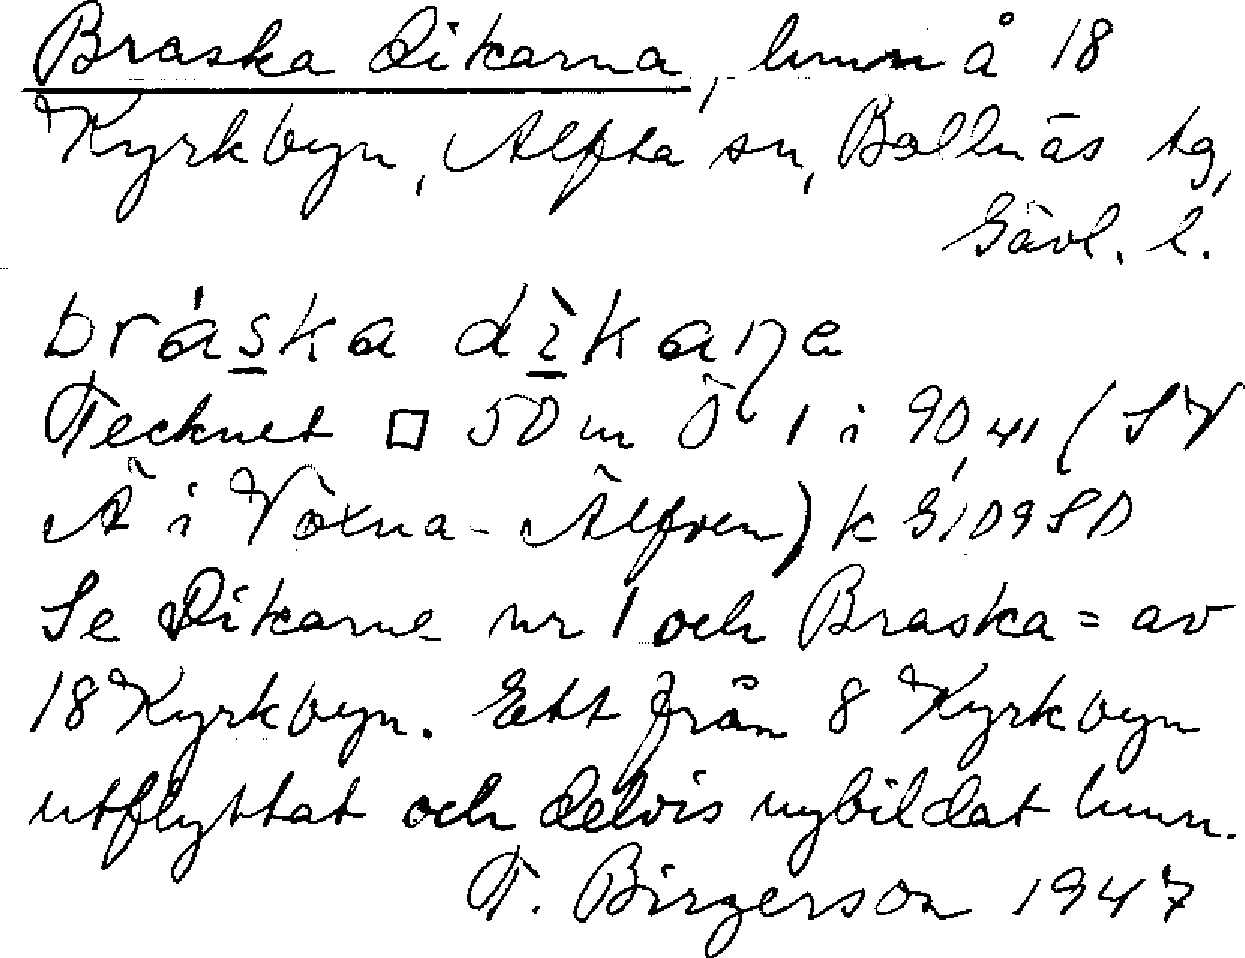 Braska Dikarna, hmn å 18
Kyrkbyn, Alfta sn, Bollnäs tg,
Gävl. l.
bráska dìkaŋe
Tecknet □ 50 m Ö 1 i 90,41 (SV
Ä i Voxna-Älfven) k G109SD
Se Dikarne nr 1 och Braska = av
18 Kyrkbyn. Ett från 8 Kyrkbyn
utflyttat och delvis nybildat hmn.
T. Birgerson 1947